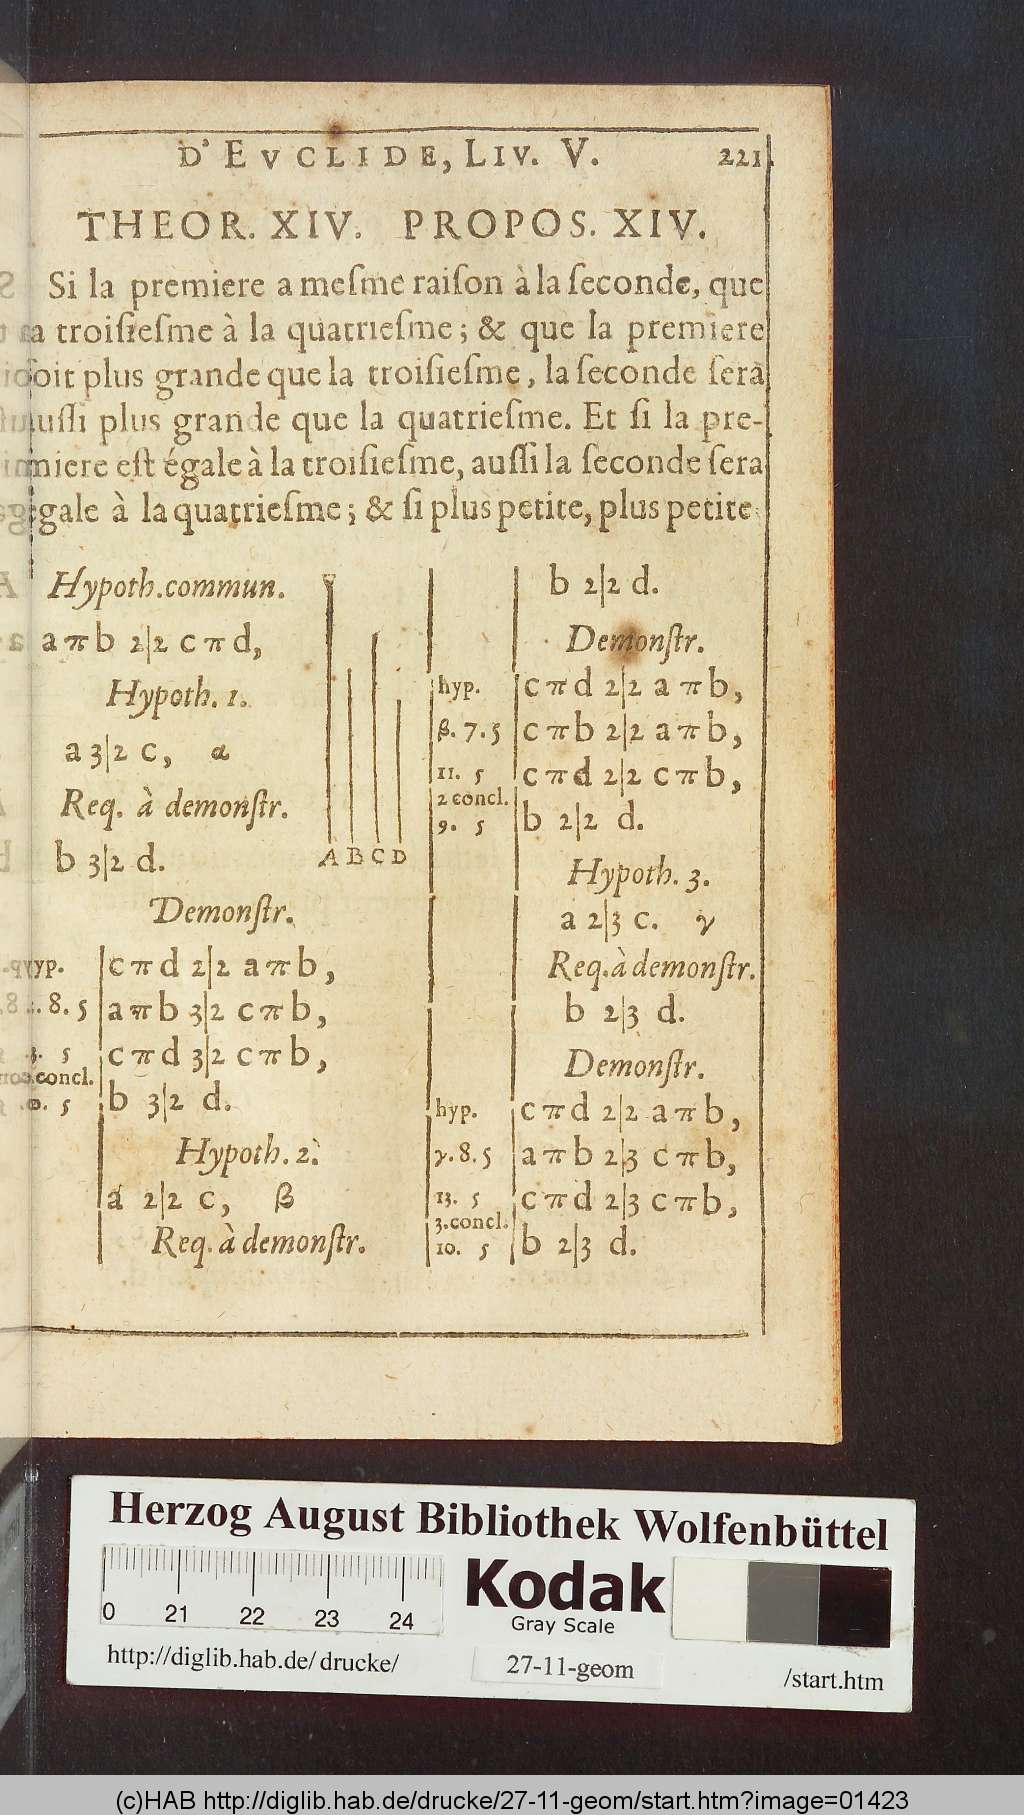 D' EVCLIDE, LIV. V. 221
THEOR. XIV. PROPOS. XIV.
Si la premiere a meſme raiſon à la ſeconde, que
la troiſieſme à la quatrieſme; & que la premiere
ſoit plus grande que la troiſieſme, la ſeconde ſerà
auſſi plus grande que la quatrieſme. Et ſi la pre-
miere eſt égale à la troiſieſme, auſſi la ſeconde ſera
égale à la quatrieſme; & ſi plus petite, plus petite
Hypoth. commun.
a π b 2|2 c π d,
Hypoth. 1.
a 3|2 c, α
Req. à demonſtr.
b 3|2 d.
A B C D
Demonſtr.
hyp. c π d 2|2 a π b,
8. 5 a π b 3|2 c π b,
5 c π d 3|2 c π b,
concl.
5 b 3|2 d.
Hypoth. 2.
a 2|2 c, β
Req. à demonſtr.
b 2|2 d.
Demonſtr.
hyp. c π d 2|2 a π b,
β. 7. 5 c π b 2|2 a π b,
11. 5 c π d 2|2 c π b,
2 concl.
9. 5 b 2|2 d.
Hypoth. 3.
a 2|3 c. γ
Req. à demonſtr.
b 2|3 d.
Demonſtr.
hyp. c π d 2|2 a π b,
γ. 8. 5 a π b 2|3 c π b,
13. 5 c π d 2|3 c π b,
3. concl.
10. 5 b 2|3 d.
Herzog August Bibliothek Wolfenbüttel
0 21 22 23 24
Kodak
Gray Scale
http://diglib.hab.de/drucke/ 27-11-geom /start.htm
(c)HAB http://diglib.hab.de/drucke/27-11-geom/start.htm?image=01423